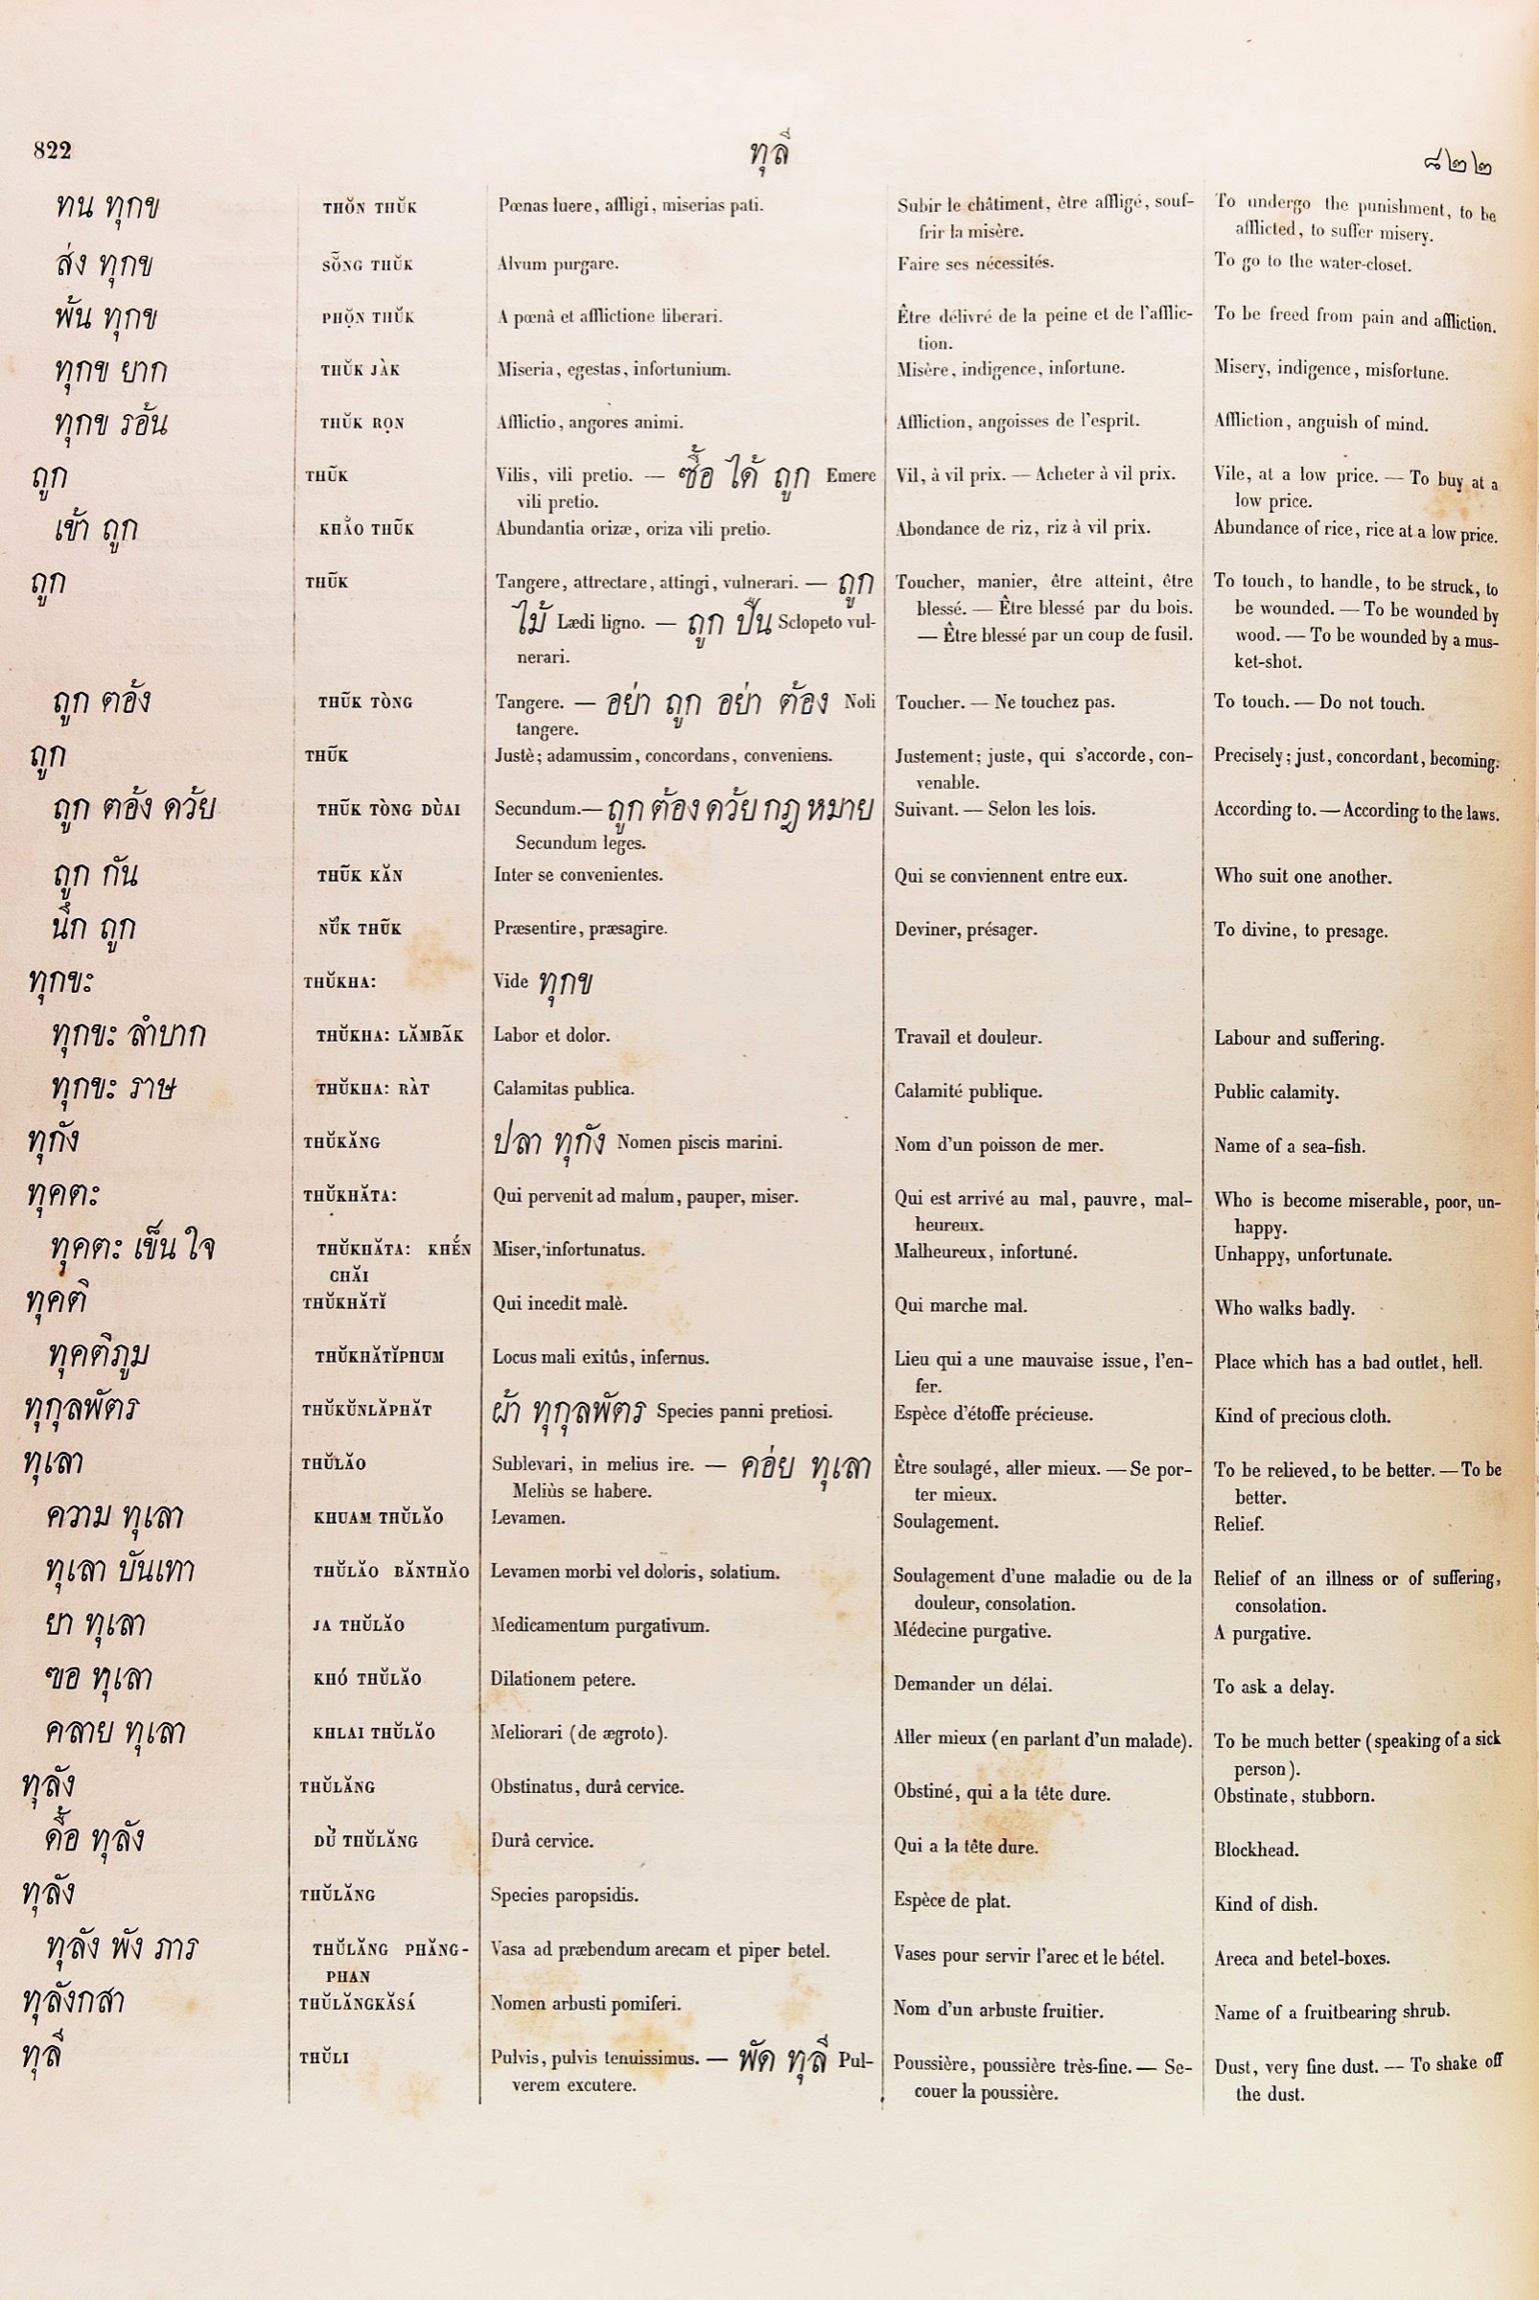 822 ทุลี ๘๒๒
ทน ทุกข THŎN THŬK Pœnas luere, affligi, miserias pati. Subir le châtiment, être affligé, souf- To undergo the punishment, to be
frir la misère. afflicted, to suffer misery.
ส่ง ทุกข SŎ̃NG THŬK Alvum purgare. Faire ses nécessités. To go to the water-closet.
พ้น ทุกข PHỌ̆N THŬK A pœnâ et afflictione liberari. Être délivré de la peine et de l'afflic- To be freed from pain and affliction.
tion.
ทุกข ยาก THŬK JÀK Miseria, egestas, infortunium. Misère, indigence, infortune. Misery, indigence, misfortune.
ทุกข รอ้น THŬK RỌN Afflictio, angores animi. Affliction, angoisses de l'esprit. Affliction, anguish of mind.
ถูก THŨK Vilis, vili pretio. — ซื้อ ได้ ถูก Emere Vil, à vil prix. — Acheter à vil prix. Vile, at a low price. — To buy at a
vili pretio. low price.
เข้า ถูก KHẢO THŨK Abundantia orizæ, oriza vili pretio. Abondance de riz, riz à vil prix. Abundance of rice, rice at a low price.
ถูก THŨK Tangere, attrectare, attingi, vulnerari. — ถูก Toucher, manier, être atteint, être To touch, to handle, to be struck, to
ไม้ Lædi ligno. — ถูก ปืน Sclopeto vul- blessé. — Être blessé par du bois. be wounded. — To be wounded by
nerari. — Être blessé par un coup de fusil. wood. — To be wounded by a mus-
ket-shot.
ถูก ตอ้ง THŨK TÒNG Tangere. — อย่า ถูก อย่า ต้อง Noli Toucher. — Ne touchez pas. To touch. — Do not touch.
tangere.
ถูก THŨK Justè; adamussim, concordans, conveniens. Justement; juste, qui s'accorde, con- Precisely; just, concordant, becoming.
venable.
ถูก ตอ้ง ดว้ย THŨK TÒNG DÙAI Secundum.— ถูก ต้อง ดว้ย กฎ หมาย Suivant. — Selon les lois. According to. — According to the laws.
Secundum leges.
ถูก กัน THŨK KĂN Inter se convenientes. Qui se conviennent entre eux. Who suit one another.
นึก ถูก NŬ́K THŨK Præsentire, præsagire. Deviner, présager. To divine, to presage.
ทุกขะ THŬKHA: Vide ทุกข
ทุกขะ ลำบาก THŬKHA: LĂMBÃK Labor et dolor. Travail et douleur. Labour and suffering.
ทุกขะ ราษ THŬKHA: RÀT Calamitas publica. Calamité publique. Public calamity.
ทุกัง THŬKĂNG ปลา ทุกัง Nomen piscis marini. Nom d'un poisson de mer. Name of a sea-fish.
ทุคตะ THŬKHĂTA: Qui pervenit ad malum, pauper, miser. Qui est arrivé au mal, pauvre, mal- Who is become miserable, poor, un-
heureux. happy.
ทุคตะ เข็น ใจ THŬKHĂTA: KHĔ́N Miser, infortunatus. Malheureux, infortuné. Unhappy, unfortunate.
CHĂI
ทุคติ THŬKHĂTĬ Qui incedit malè. Qui marche mal. Who walks badly.
ทุคติภูม THŬKHĂTĬPHUM Locus mali exitûs, infernus. Lieu qui a une mauvaise issue, l'en- Place which has a bad outlet, hell.
fer.
ทุกุลพัตร THŬKŬNLĂPHĂT ผ้า ทุกุลพัตร Species panni pretiosi. Espèce d'étoffe précieuse. Kind of precious cloth.
ทุเลา THŬLĂO Sublevari, in melius ire. — ค่อย ทุเลา Être soulagé, aller mieux. — Se por- To be relieved, to be better. — To be
Meliùs se habere. ter mieux. better.
ความ ทุเลา KHUAM THŬLĂO Levamen. Soulagement. Relief.
ทุเลา บันเทา THŬLĂO BĂNTHĂO Levamen morbi vel doloris, solatium. Soulagement d'une maladie ou de la Relief of an illness or of suffering,
douleur, consolation. consolation.
ยา ทุเลา JA THŬLĂO Medicamentum purgativum. Médecine purgative. A purgative.
ฃอ ทุเลา KHÓ THŬLĂO Dilationem petere. Demander un délai. To ask a delay.
คลาย ทุเลา KHLAI THŬLĂO Meliorari (de ægroto). Aller mieux (en parlant d'un malade). To be much better (speaking of a sick
person).
ทุลัง THŬLĂNG Obstinatus, durâ cervice. Obstiné, qui a la tête dure. Obstinate, stubborn.
ดื้อ ทุลัง DỦ THŬLĂNG Durâ cervice. Qui a la tête dure. Blockhead.
ทุลัง THŬLĂNG Species paropsidis. Espèce de plat. Kind of dish.
ทุลัง พัง ภาร THŬLĂNG PHĂNG- Vasa ad præbendum arecam et piper betel. Vases pour servir l'arec et le bétel. Areca and betel-boxes.
PHAN
ทุลังกสา THŬLĂNGKĂSÁ Nomen arbusti pomiferi. Nom d'un arbuste fruitier. Name of a fruitbearing shrub.
ทุลี THŬLI Pulvis, pulvis tenuissimus. — พัด ทุลี Pul- Poussière, poussière très-fine. — Se- Dust, very fine dust. — To shake off
verem excutere. couer la poussière. the dust.